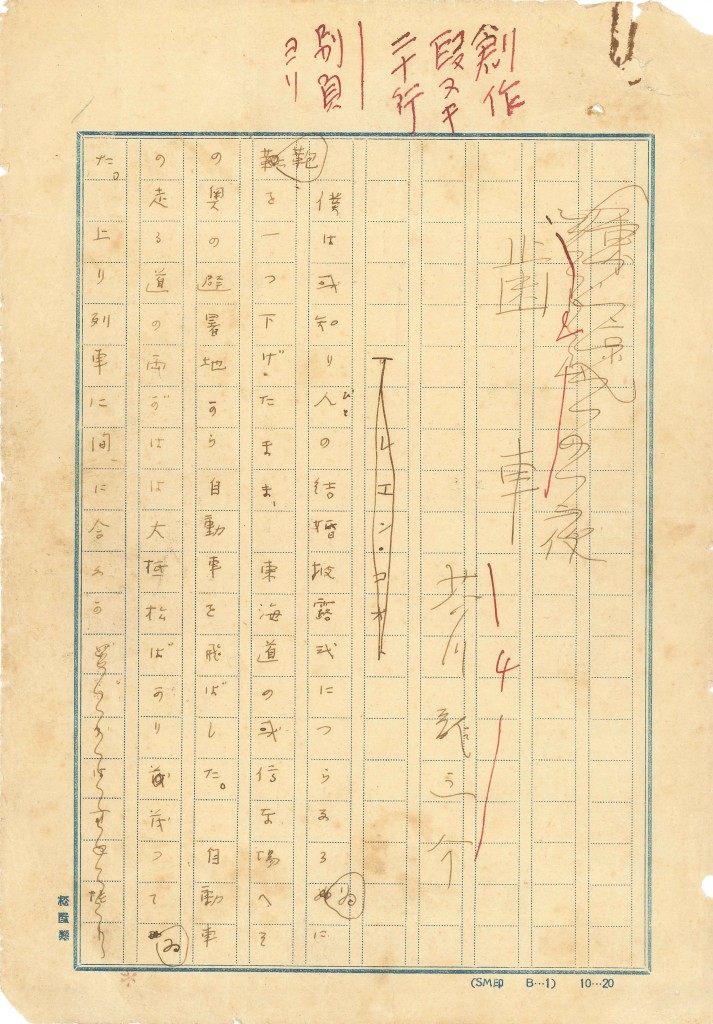 創作
段ヌキ
二十行
別頁
ヨリ
東京の夜
歯車
4
芥川龍之介
一 レエン・コオト
僕は或知り人の結婚披露式につらなる為に
びと
鞄を一つ下げたまま、東海道の或停車場へそ
の奥の避暑地から自動車を飛ばした。自動車
の走る道の両がはは大抵松ばかり茂つてゐ
た。上り列車に間に合ふか
松屋製
(SM印 B…1) 10…20